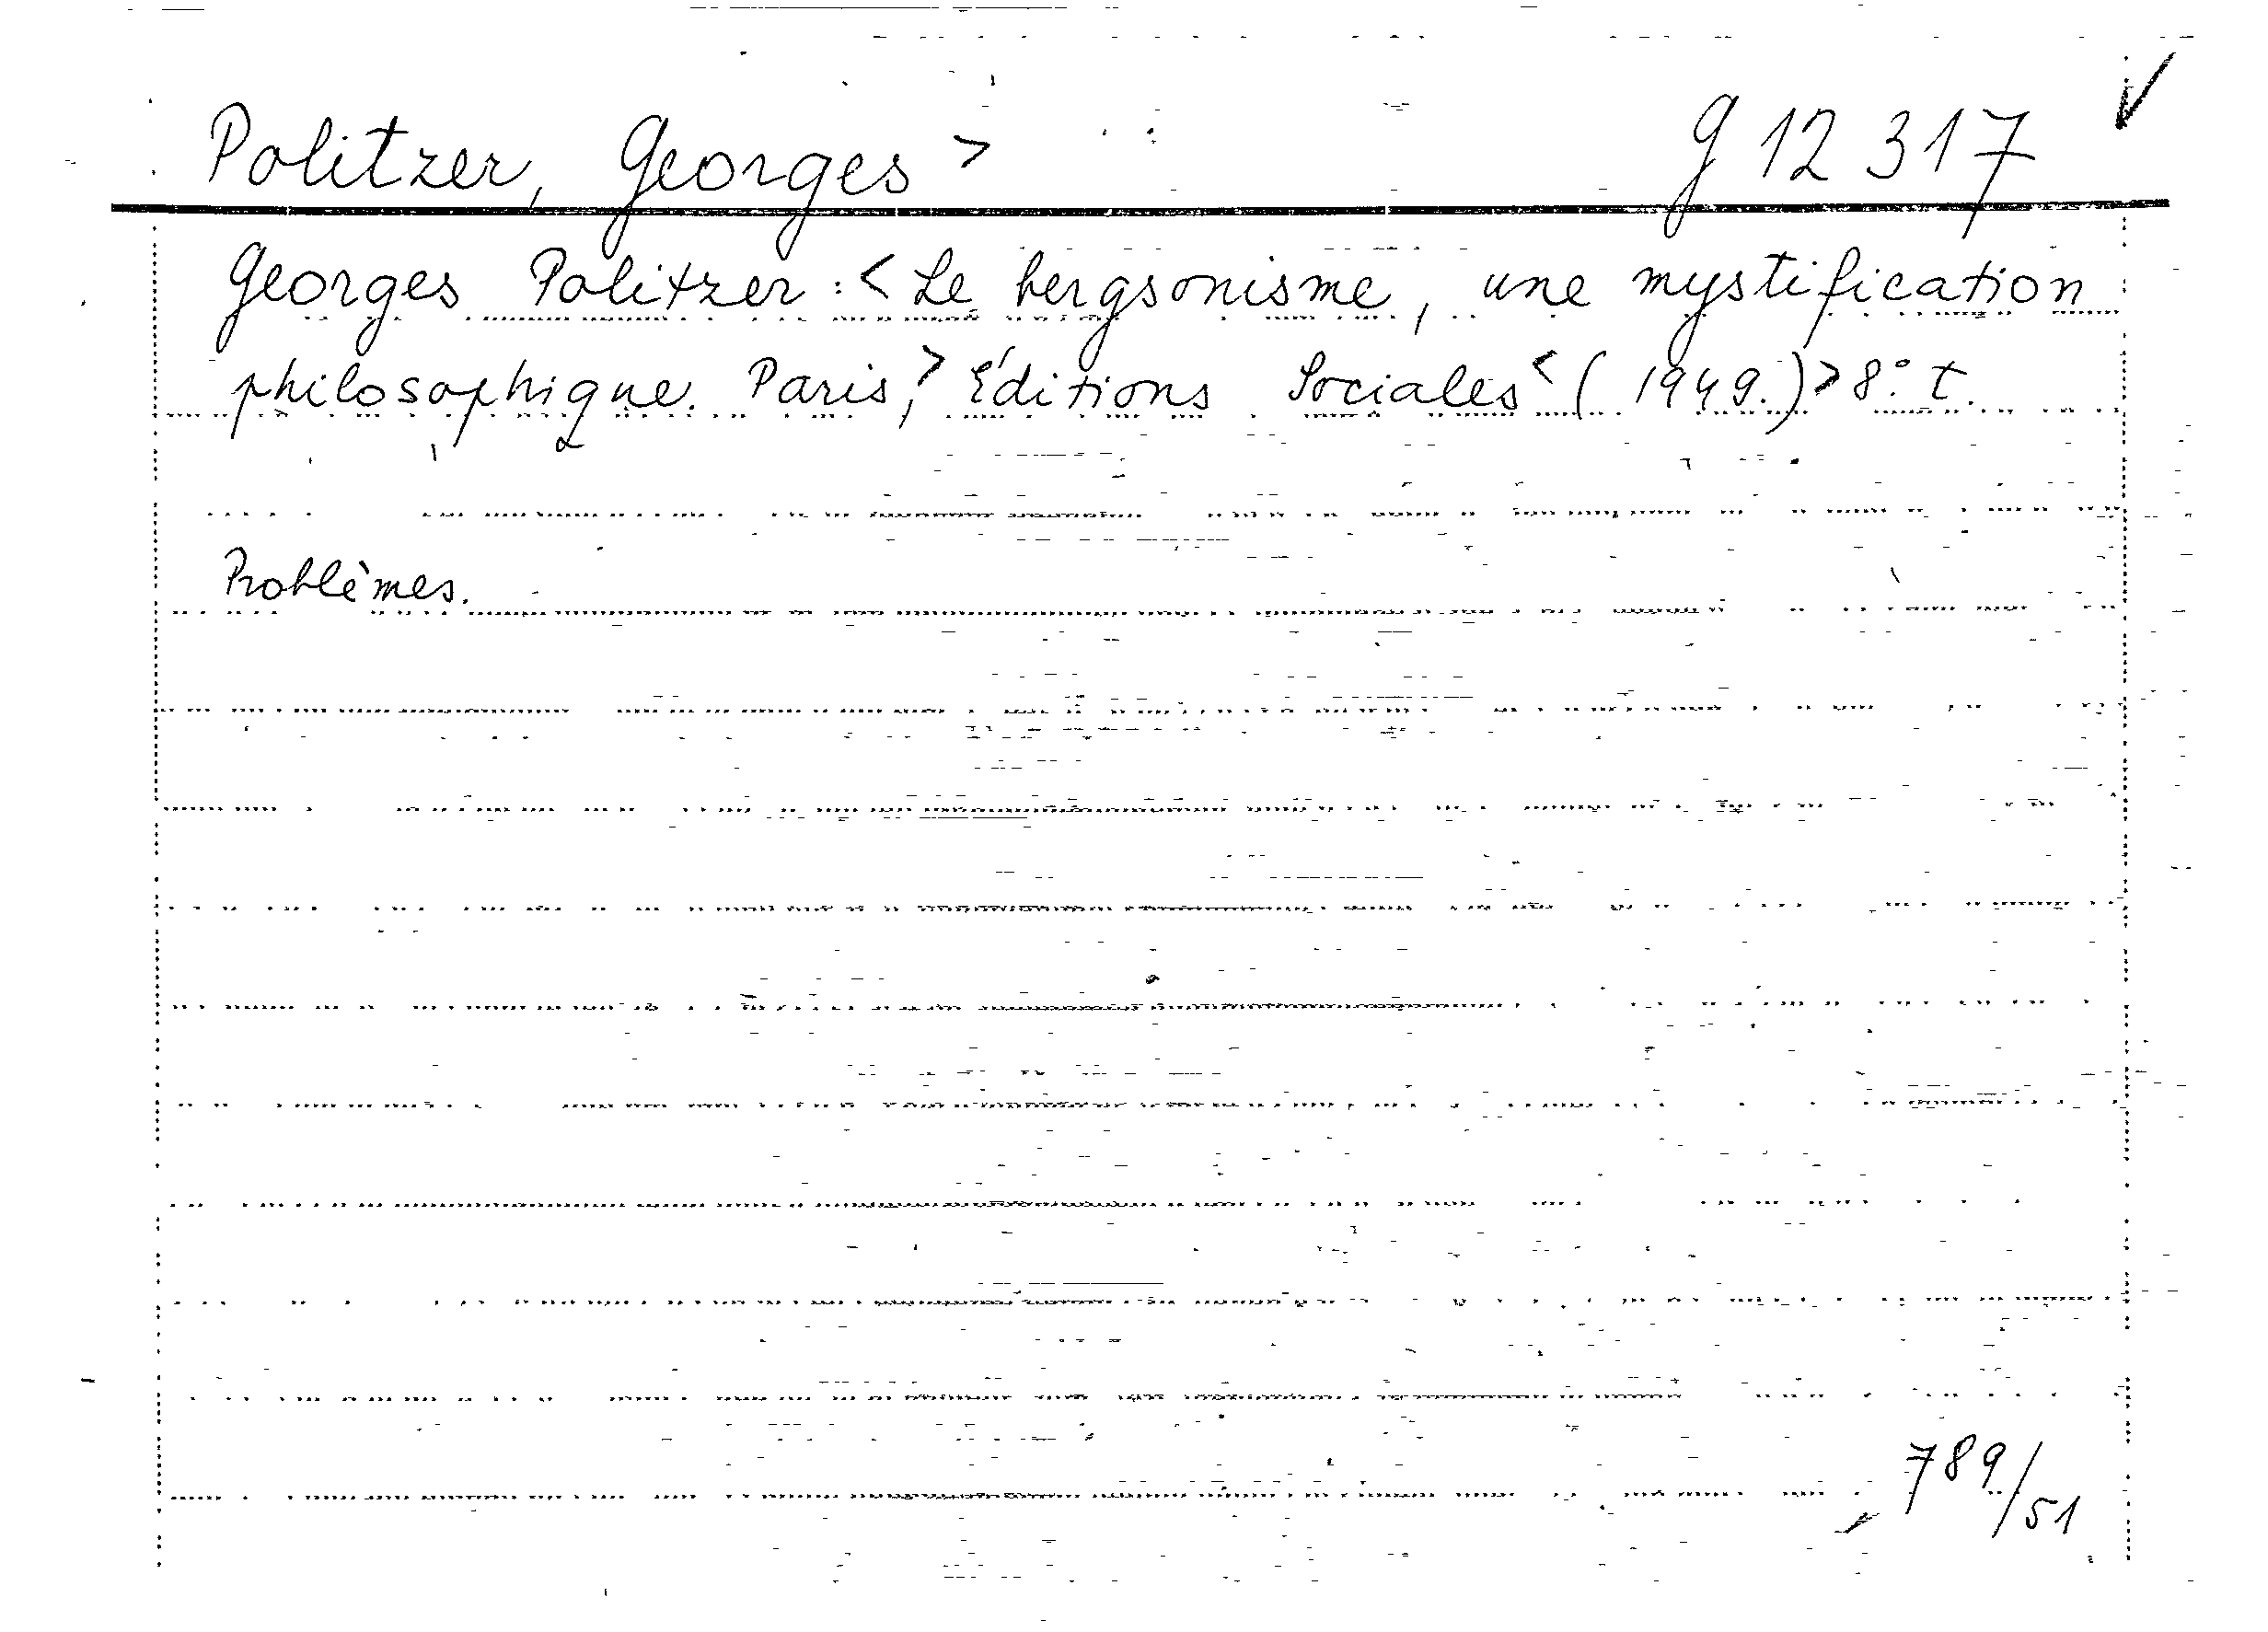 Politzer, Georges > g 12 317
Georges Politzer: < Le bergsonisme, une mystification
philosophique. Paris, > Éditions Sociales < (1949.) > 8° t.
Problèmes.
789/51